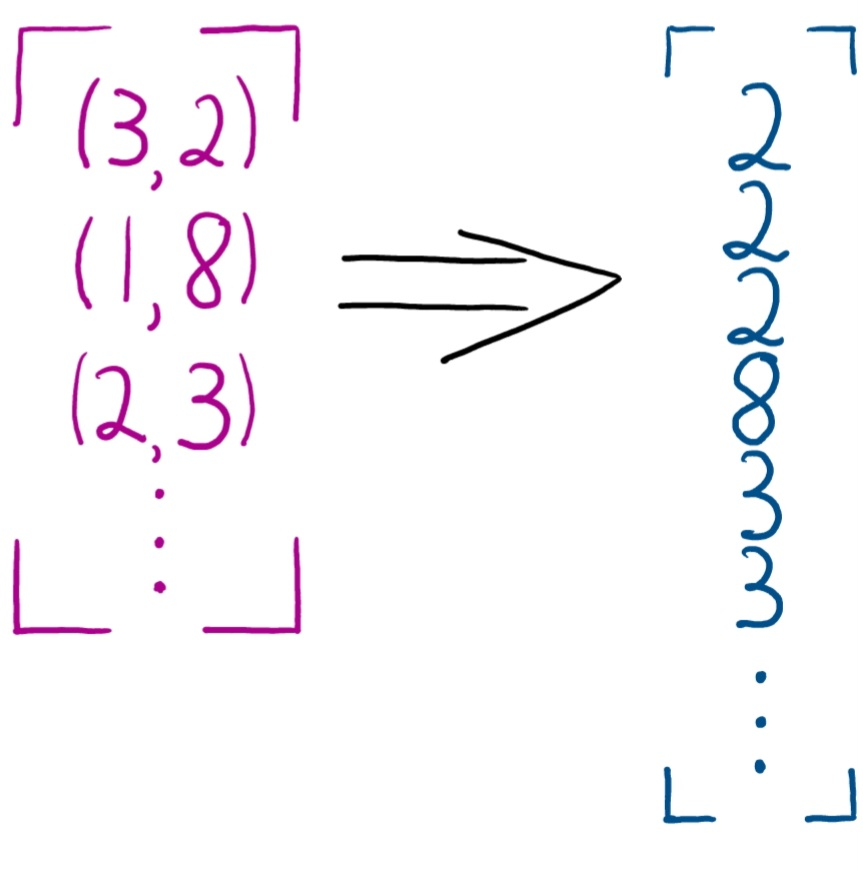 (3,2)
(1,8)
(2,3)
2
2
2
8
3
3